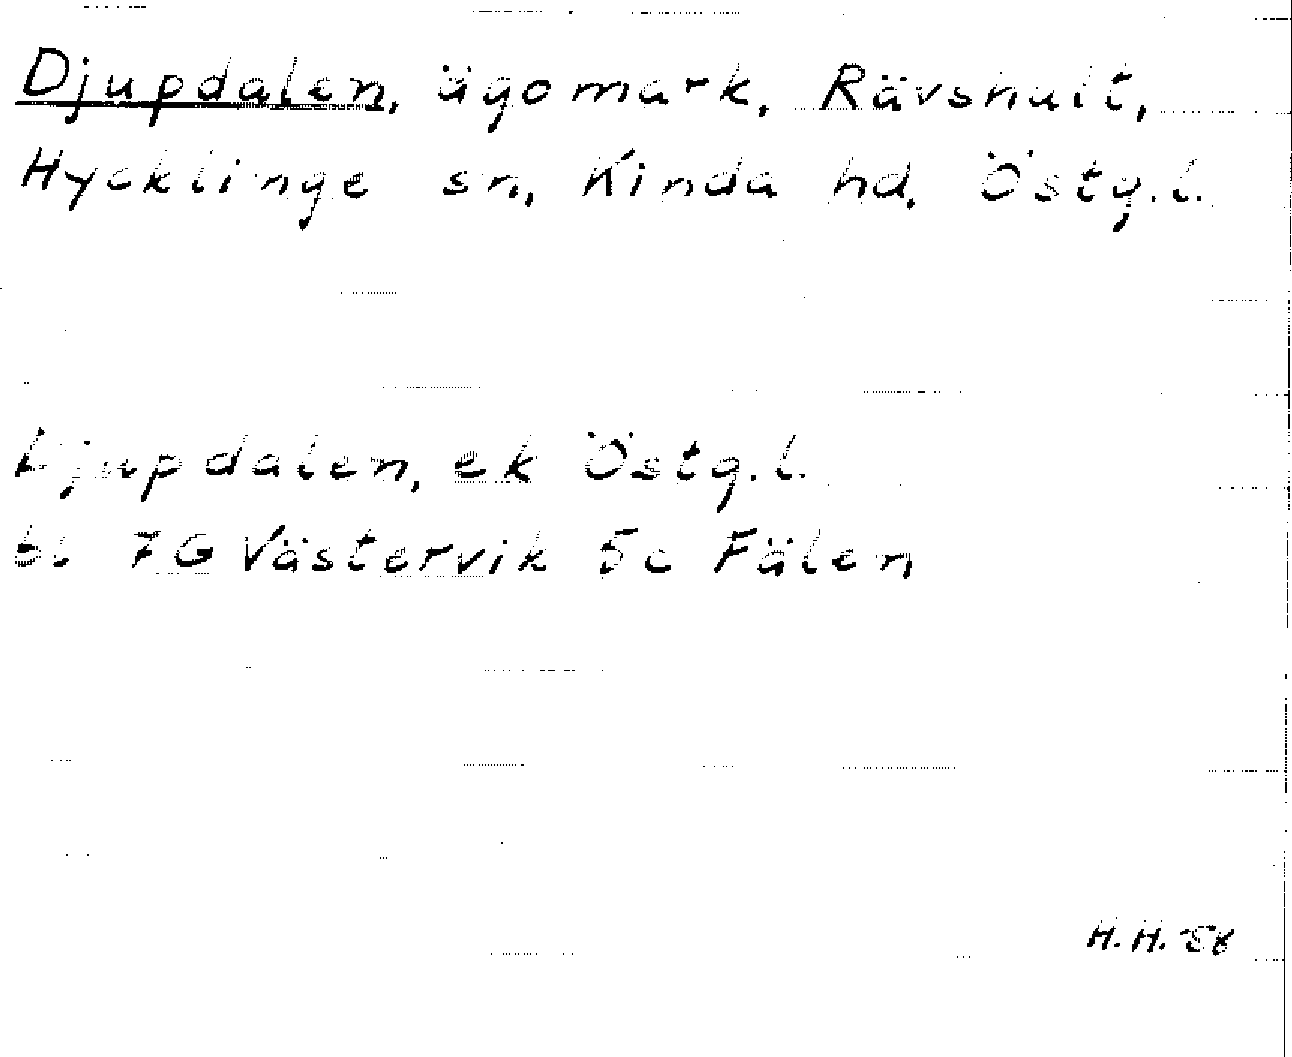 Djupdalen, ägomark, Rävshult,
Hycklinge sn, Kinda hd. Östg.l.
Djupdalen, ek Östg.l.
bl 7G Västervik 5c Fälen
H.H. 58